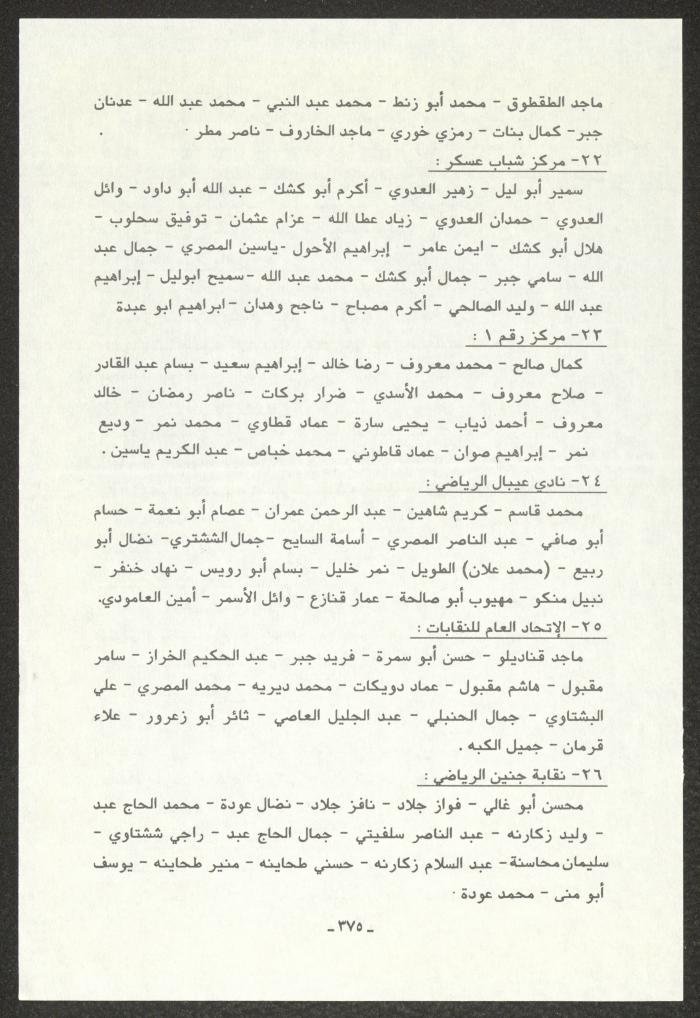 ماجد الطقطوق – محمد أبو زنط – محمد عبد النبي – محمد عبد الله – عدنان
جبر– كمال بنات – رمزي خوري – ماجد الخاروف – ناصر مطر .
٢٢– مركز شباب عسكر :
سمير أبو ليل – زهير العدوي – أكرم أبو كشك – عبد الله أبو داود – وائل
العدوي – حمدان العدوي – زياد عطا الله – عزام عثمان – توفيق سحلوب –
هلال أبو كشك – ايمن عامر – إبراهيم الأحول -ياسين المصري – جمال عبد
الله – سامي جبر – جمال أبو كشك – محمد عبد الله –سميح ابوليل – إبراهيم
عبد الله – وليد الصالحي – أكرم مصباح – ناجح وهدان –ابراهيم ابو عبدة
٢٣– مركز رقم ١ :
كمال صالح – محمد معروف – رضا خالد – إبراهيم سعيد – بسام عبد القادر
– صلاح معروف – محمد الأسدي – ضرار بركات – ناصر رمضان – خالد
معروف – أحمد ذياب – يحيى سارة – عماد قطاوي – محمد نمر – وديع
نمر – إبراهيم صوان – عماد قاطوني – محمد خباص – عبد الكريم ياسين .
٢٤– نادي عيبال الرياضي :
محمد قاسم – كريم شاهين – عبد الرحمن عمران – عصام أبو نعمة – حسام
أبو صافي – عبد الناصر المصري – أسامة السايح –جمال الششتري– نضال أبو
ربيع – (محمد علان) الطويل – نمر خليل – بسام أبو رويس – نهاد خنفر –
نبيل منكو – مهيوب أبو صالحة – عمار قنازع – وائل الأسمر – أمين العامودي.
٢٥– الإتحاد العام للنقابات :
ماجد قناديلو – حسن أبو سمرة – فريد جبر – عبد الحكيم الخراز – سامر
مقبول – هاشم مقبول – عماد دويكات – محمد ديريه – محمد المصري – علي
البشتاوي – جمال الحنبلي – عبد الجليل العاصي – ثائر أبو زعرور – علاء
قرمان – جميل الكبه .
٢٦– نقابة جنين الرياضي :
محسن أبو غالي – فواز جلاد – نافز جلاد – نضال عودة – محمد الحاج عبد
– وليد زكارنه – عبد الناصر سلفيتي – جمال الحاج عبد – راجي ششتاوي –
سليمان محاسنة– عبد السلام زكارنه – حسني طحاينه – منير طحاينه – يوسف
أبو منى – محمد عودة .
ـ ٣٧٥ ـ